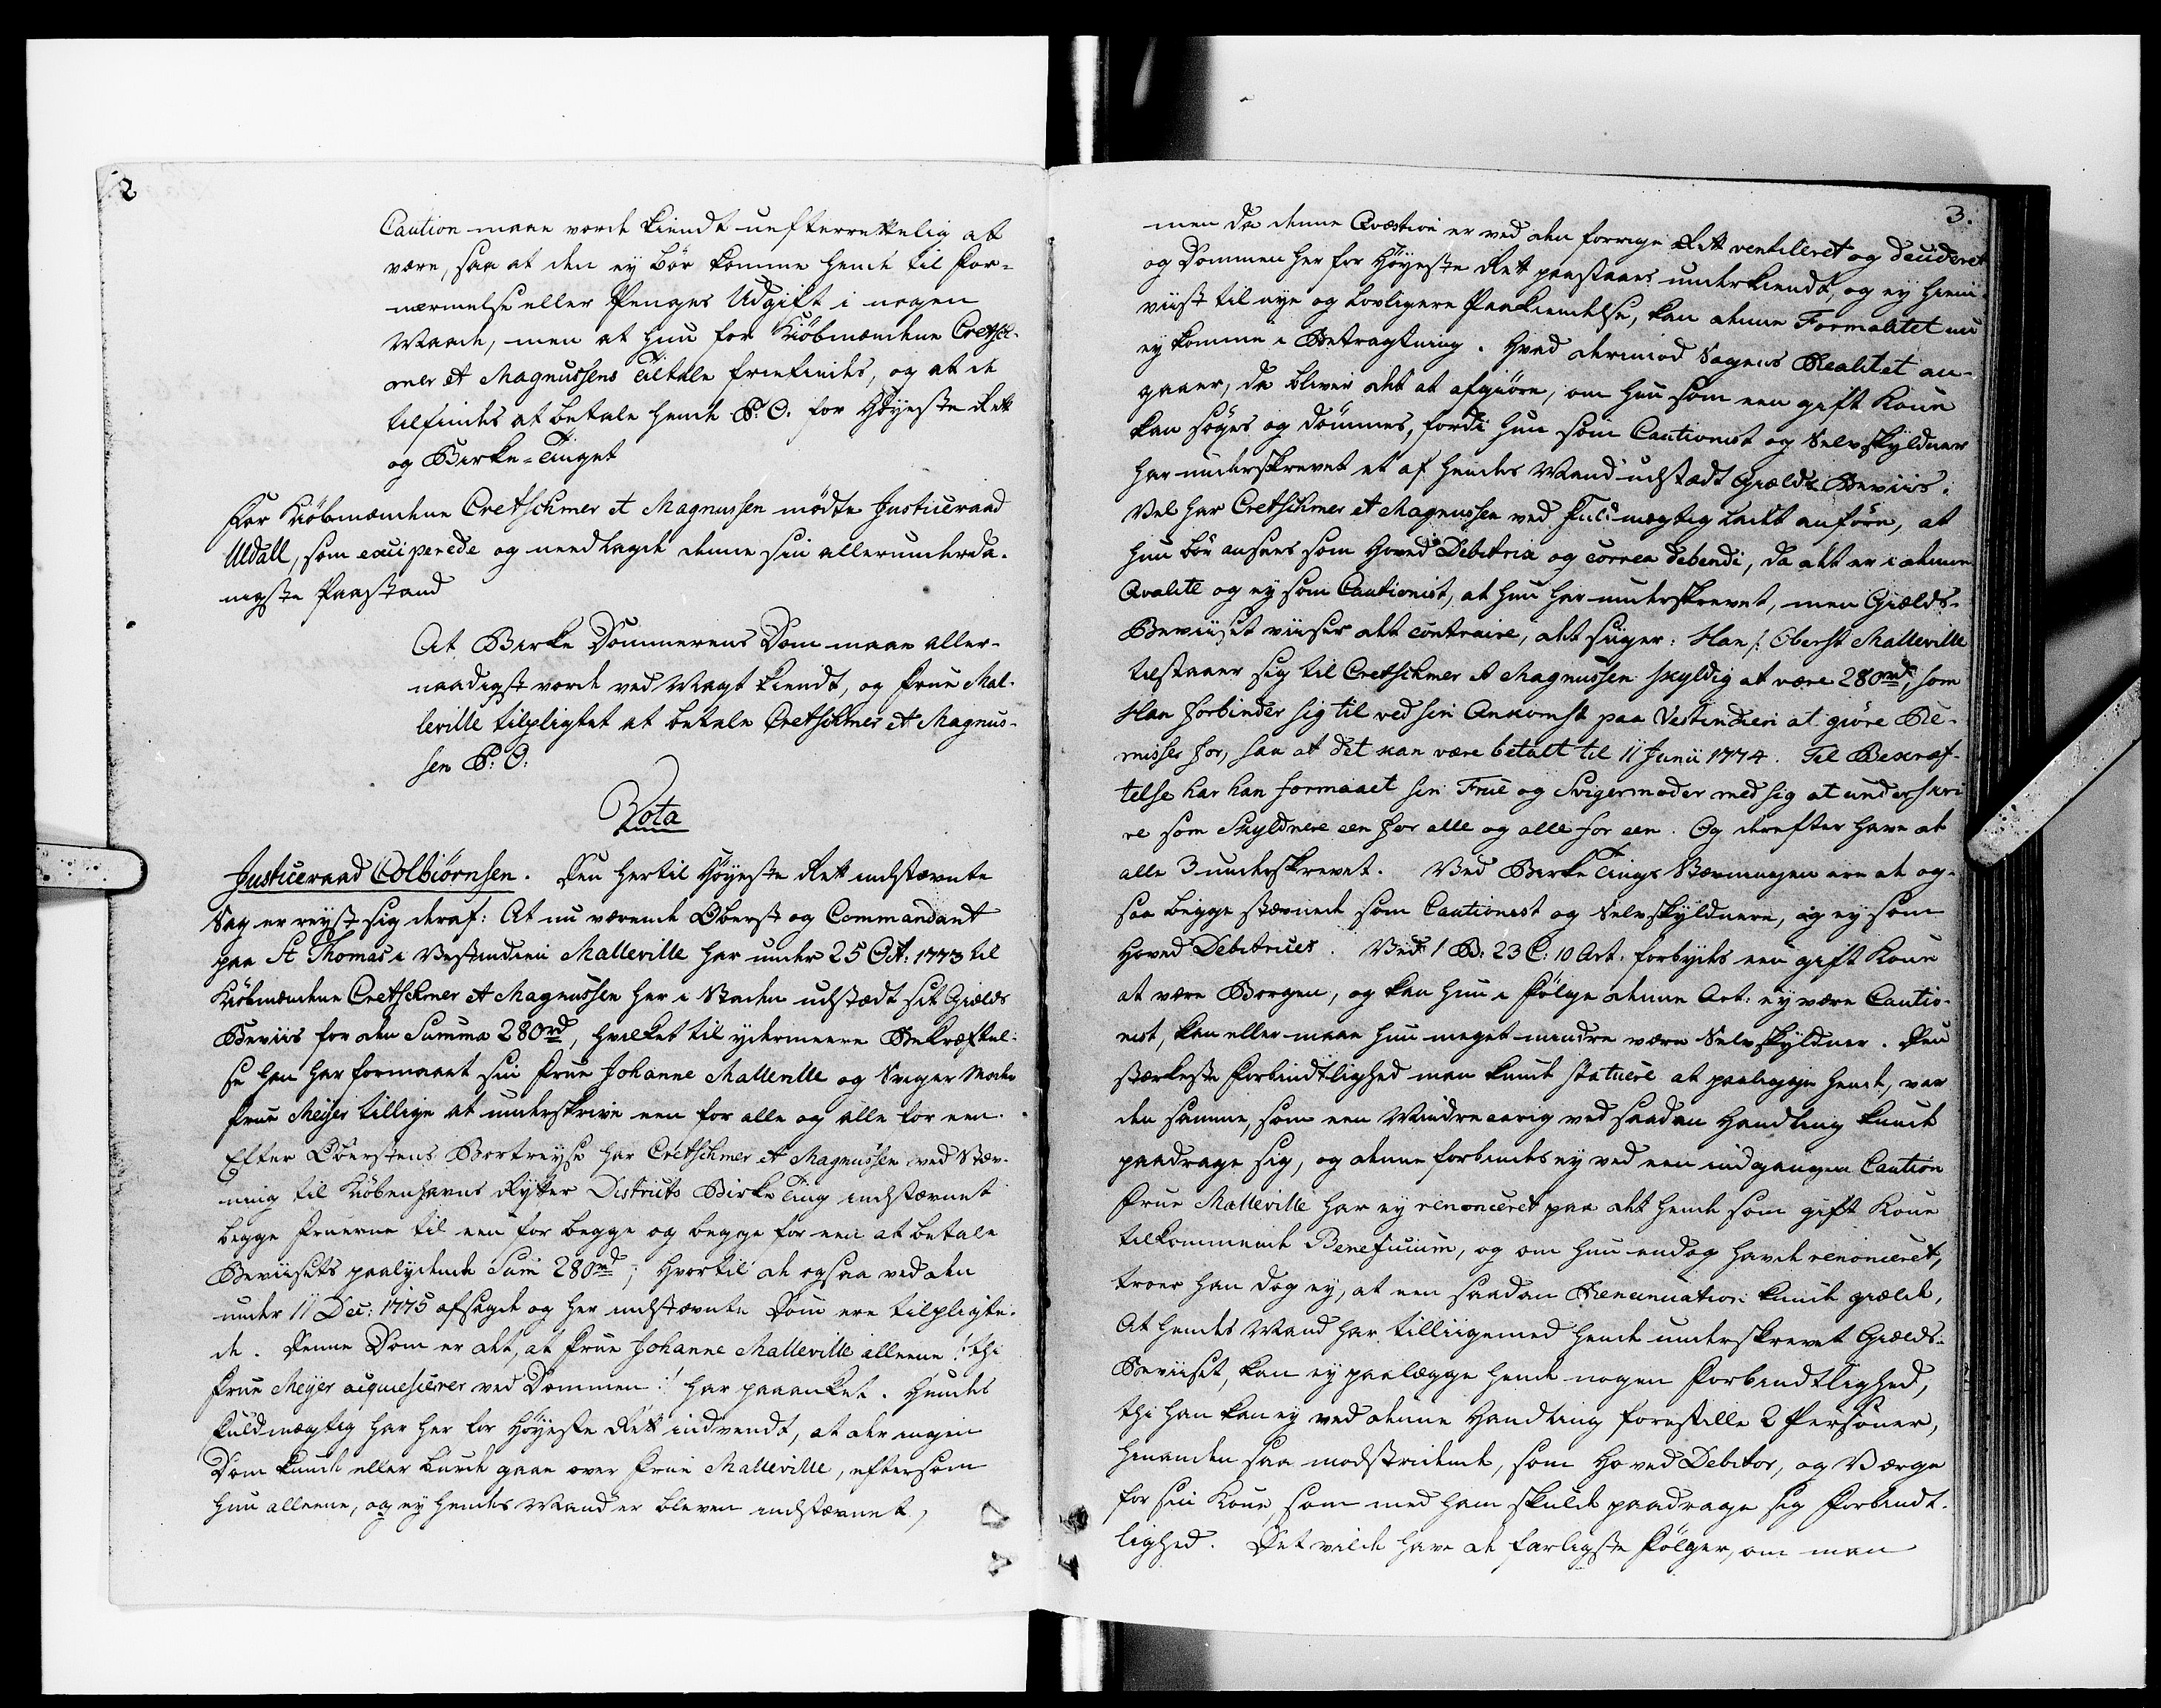 2
Caution maae vorde kiendt uefterrettelig at
være, saa at den ey bör komme hende til For-
nærmelse eller Penges Udgift i nogen
Maade, men at hun for Kiöbmændene Cretsch-
mer et Magnussens Tiltale friefindes, og at de
tilfindes at betale hende P: O. for Höyeste Rett
og Birke-Tinget
For Kiöbmændene Cretschmer et Magnussen mödte Justiceraad
Uldall, som exciperede og nedlagde denne sin allerunderda-
nigste Paastand
At Birke Dommerens Dom maae aller-
naadigst vorde ved Magt kiendt, og Frue Mal-
leville tilpligtet at betale Cretschmer et Magnus-
sen P: O:
Vota
Justiceraad Colbiörnsen. Den hertil Höyeste Rett indstævnte
Sag er reyst sig deraf: At nu værende Oberst og Commandant
paa St Thomas i Vestindien Malleville har under 25 Oct: 1773 til
Kiöbmændene Cretschmer et Magnussen her i Staden udstædt sit Gields
Beviis for den Summa 280 rd, hvilket til ydermeere Bekræftel-
se han har formaaet sin Frue Johanne Malleville og Sviger Moder
Frue Meyer tillige at underskrive een for alle og alle for een.
Efter Oberstens Bortreyse har Cretschmer et Magnussen ved Stæv-
ning til Kiöbenhavns Rytter Districts Birke Ting indstævnet
begge Fruerne til een for begge og begge for een at betale
Beviisets paalydende Sum 280 rd; hvortil de ogsaa ved den
under 11 Dec: 1775 afsagde og her indstævnte Dom ere tilpligte-
de. Denne Dom er det, at Frue Johanne Malleville alleene /: thi
Frue Meyer acquiescerer ved Dommen :/ har paaanket. Hendes
Fuldmægtig har her for Höyeste Rett indvendt, at der ingen
Dom kunde eller burde gaae over Frue Malleville, eftersom
hun alleene, og ey hendes Mand er bleven indstævnet,
3.
men da denne Qvæstion er ved den forrige Rett ventilleret og decideret
og Dommen her for Höyeste Rett paastaaes underkiendt, og ey hiem-
viist til nye og lovligere Paakiendelse, kan denne Formalitet nu
ey komme i Betragtning. Hvad derimod Sagens Realitet an-
gaaer, da bliver det at afgiöre, om hun som een gift Kone
kan söges og dömmes, fordi hun som Cautionist og Selvskyldner
har underskrevet et af hendes Mand udstædt Gields Beviis.
Vel har Cretschmer et Magnussen ved Fuldmægtig ladet anföre, at
hun bör ansees som Hoved Debitrix og correa debendi, da det er i denne
Qvalite og ey som Cautionist, at hun har underskrevet, men Gields-
Beviiset viiser det contraire, det siiger: Han /: Oberst Malleville
tilstaaer sig til Cretschmer et Magnussen skyldig at være 280 rd, som
Han forbinder sig til ved sin Ankomst paa Vestindien at giöre Re-
misser for, saa at det kan være betalt til 11 Junii 1774. Til Bekræf-
telse har han formaaet sin Frue og Svigermoder med sig at underskri-
ve som Skyldnere een for alle og alle for een. Og derefter have de
alle 3 underskrevet. Ved Birke Tings Stævningen ere de og-
saa begge stævnede som Cautionist og Selvskyldnere, og ey som
Hoved Debitrices. Ved 1 B: 23 C: 10 Art. forbydes een gift Kone
at være Borgen, og kan hun i Fölge denne Art: ey være Cautio-
nist, kan eller maae hun meget mindre være Selvskyldner. Den
stærkeste Forbindtlighed man kunde statuere at paaligge hende, var
den samme, som een Mindreaarig ved saadan Handling kunde
paadrage sig, og denne forbindes ey ved een indgangen Caution
Frue Malleville har ey renonceret paa det hende som gift Kone
tilkommende Beneficium, og om hun endog havde renonceret,
troer han dog ey, at een saadan Renunciation kunde gielde,
At hendes Mand har tilliigemed hende underskrevet Gields-
Beviiset, kan ey paalægge hende nogen Forbindtlighed,
thi han kan ey ved denne Handling forestille 2 Personer,
hinanden saa modstridende, som Hoved Debitor, og Værge
for sin Kone, som med ham skulde paadrage sig Forbindt-
lighed. Det vilde have de farligste Fölger, om man